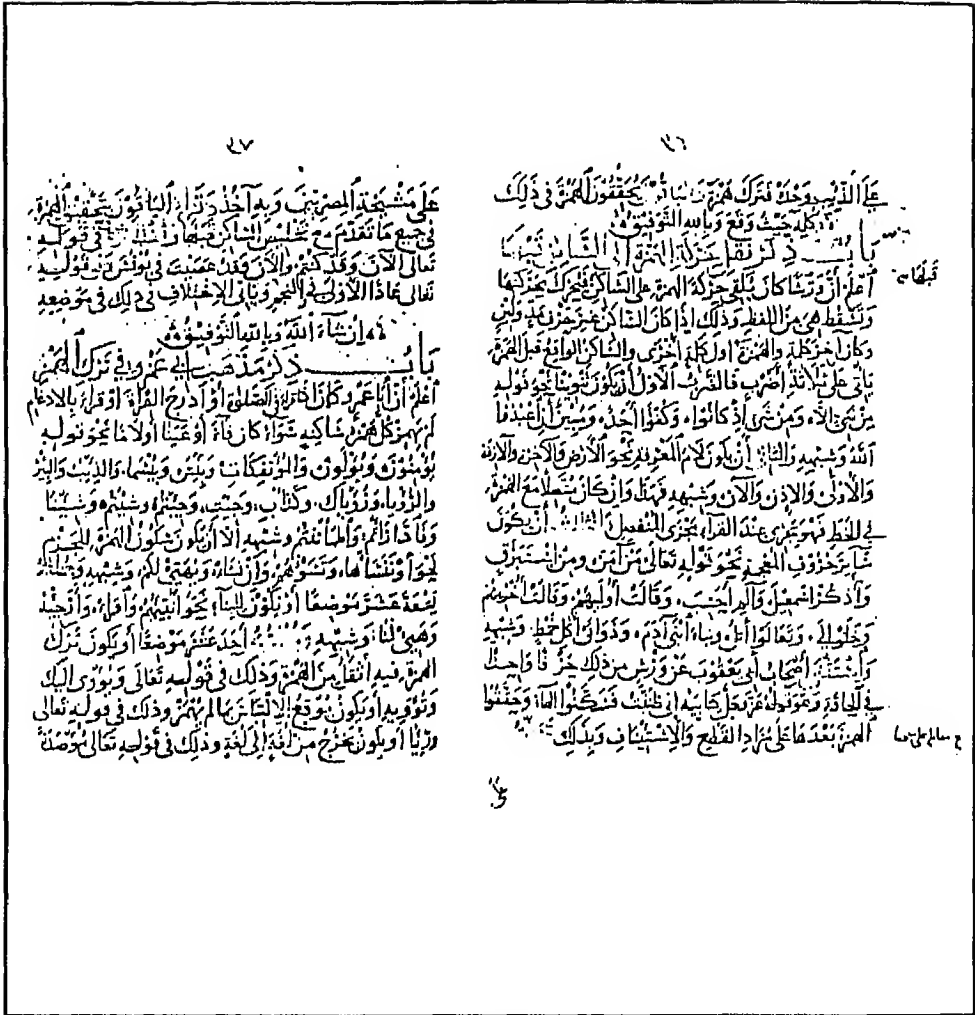 ٣٦
على الذيب وحده فترك همزه الباقون يحققون الهمزة في ذلك
كله حيث وقع وبالله التوفيق
باب ذكر نقل حركة الهمزة الى الساكن قبلها
قبلها
اعلم أن ورشا كان يلقي حركة الهمزة على الساكن فيحرك بحركتها
وتسقط هي من اللفظ وذلك إذا كان الساكن غير حرف مد ولين
وكان آخر كلمة والهمزة أول كلمة أخرى والساكن الواقع قبل الهمزة
يأتي على ثلاثة أضرب فالضرب الأول أن يكون تنوينا نحو قوله
من شيء الا ومن شيء اذ كانوا وكفوا أحد ومبين أن اعبدوا
الله وشبهه والثاني أن يكون لام المعرفة نحو الأرض والآخرة والآزفة
والأولى والإذن والآن وشبهه فهذا وإن كان متصلا مع الهمزة
في الخط فهو يجري عند القراء مجرى المنفصل والثالث أن يكون
سائر حروف المعجم نحو قوله تعالى من آمن ومن استبرق
واذكر اسمعيل والم أحسب وقالت أوليهم وقالت أخريهم
وخلوا إلى وتعالوا أتل ونبأ ابني آدم وذواتي أكل خمط وشبهه
واستثنى أصحاب أبي يعقوب عن ورش من ذلك حرفا واحدا
في الحاقة وهو قوله عز وجل كتابيه إني ظننت فسكنوا الهاء وحققوا
الهمزة بعدها على مراد القطع والاستيناف وبذلك
٣٧
على مشيخة المصريين وبه آخذ وقرأ الباقون بتحقيق الهمزة
في جميع ما تقدم مع تخليص الساكن قبلها في قوله
تعالى الآن وقد كنتم والآن وقد عصيت في يونس وفي قوله
تعالى عادا الأولى في النجم ويأتي الاختلاف في ذلك في موضعه
إن شاء الله وبالله التوفيق
باب ذكر مذهب أبي عمرو في ترك الهمز
اعلم أن أبا عمرو كان إذا قرأ في الصلوة أو أدرج القراءة أو قرأ بالادغام
لم يهمز كل همزة ساكنة سواء كان فاء أو عينا أو لاما نحو قوله
يؤمنون ويؤلون والمؤتفكات وبئس وبئسما والذئب والبئر
والرؤيا ورؤياك وكدأب وجئت وجئتم وشئتم وشئنا
وفادارأتم واطمأننتم وشبهه الا أن يكون سكون الهمزة للجزم
نحو أو ننسأها وتسؤهم وإن نشأ ويهيئ لكم وشبهه وجملته
تسعة عشر موضعا أو يكون للبناء نحو أنبئهم واقرأ وأرجئه
وهيئ لنا وشبهه وجملته أحد عشر موضعا أو يكون ترك
الهمزة فيه أثقل من الهمزة وذلك في قوله تعالى وتؤوي اليك
وتؤويه أو يكون يوقع الالتباس بما لا يهمز وذلك في قوله تعالى
ورئيا أو يكون يخرج من لغة إلى لغة وذلك في قوله تعالى مؤصدة